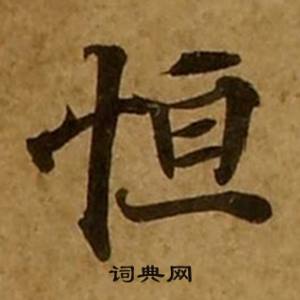 恒
词典网